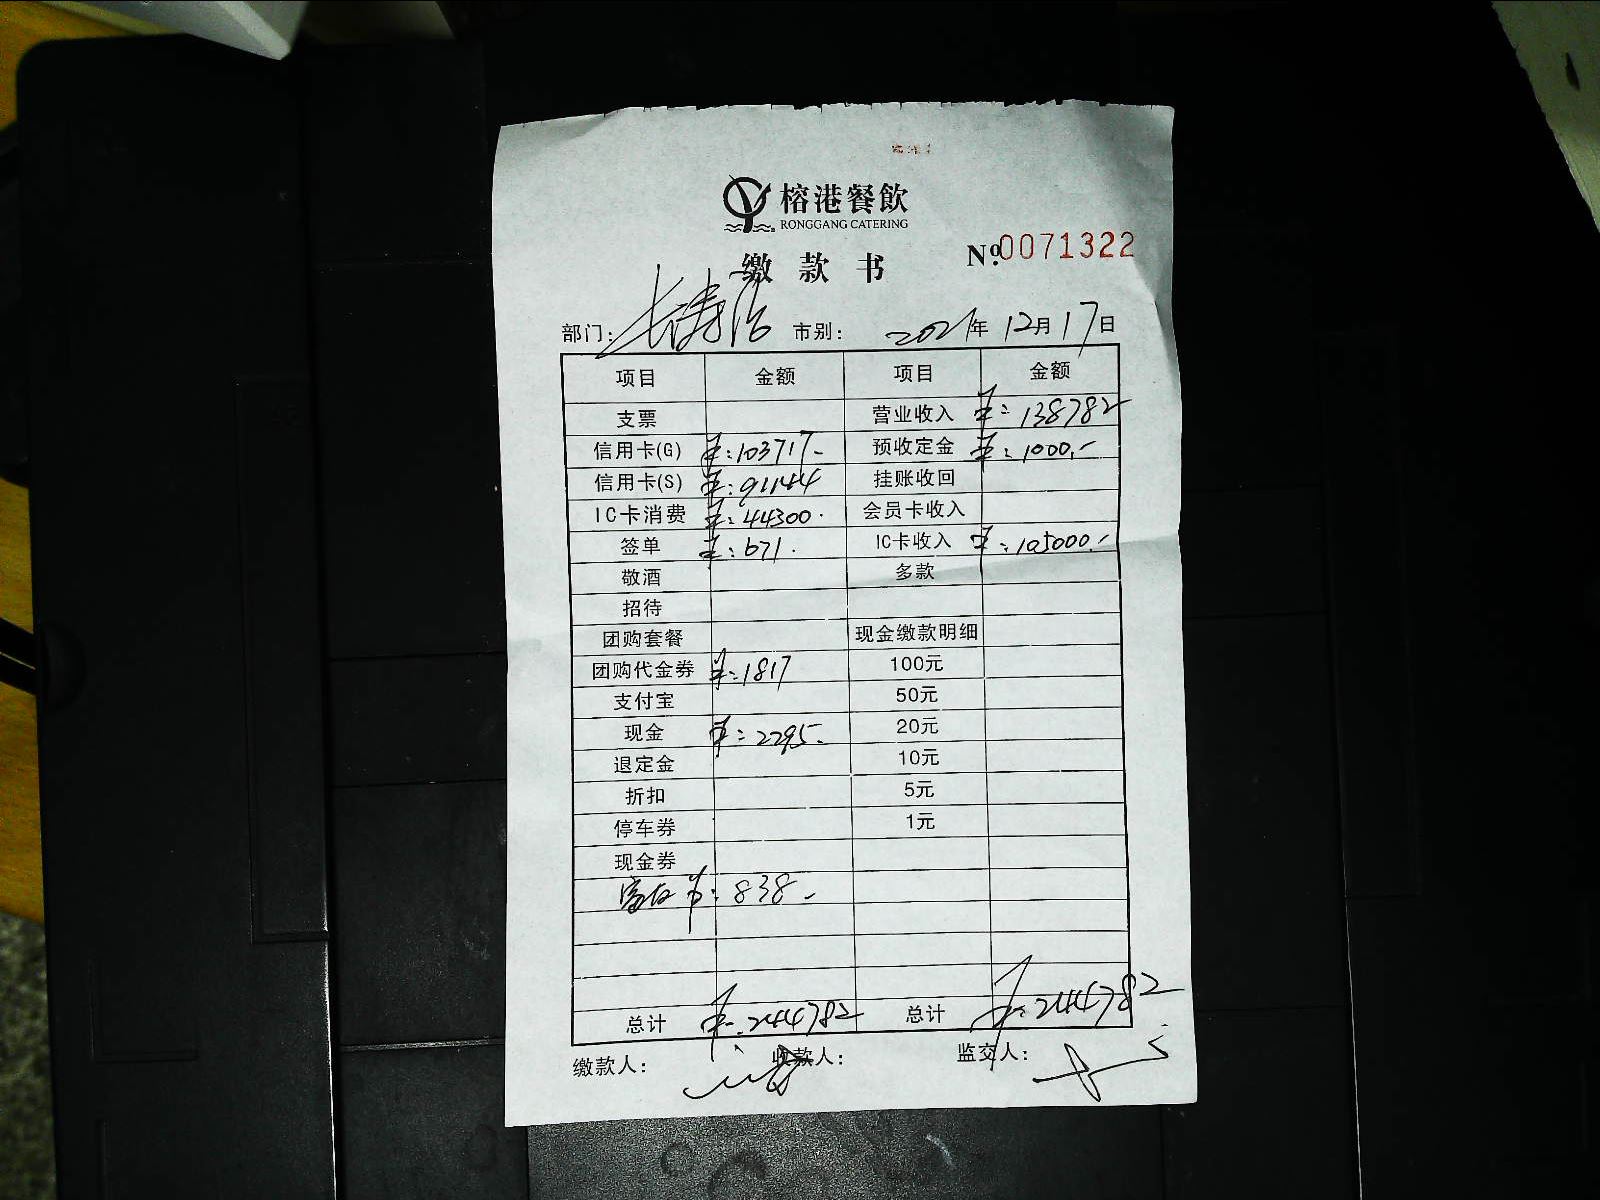 榕港餐飲
RONGGANG CATERING
№0071322
缴款书
部门: 市别: 2021年12月17日
项目 金额 项目 金额
支票 营业收入 ¥:138782
信用卡(G) ¥:103717- 预收定金 ¥:1000.-
信用卡(S) ¥:91144 挂账收回
IC卡消费 ¥:44300. 会员卡收入
签单 ¥:671. IC卡收入 ¥:105000.-
敬酒 多款
招待
团购套餐 现金缴款明细
团购代金券 ¥:1817 100元
支付宝 50元
现金 ¥:2295- 20元
退定金 10元
折扣 5元
停车券 1元
现金券
¥:838-
总计 ¥:244782 总计 ¥:244782
缴款人: 收款人: 监交人: